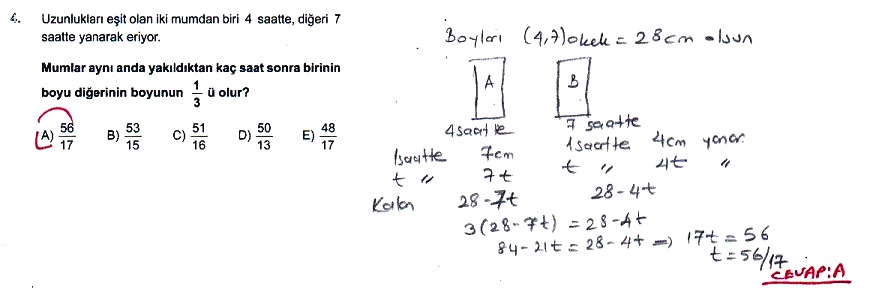 4. Uzunlukları eşit olan iki mumdan biri 4 saatte, diğeri 7
saatte yanarak eriyor.
Mumlar aynı anda yakıldıktan kaç saat sonra birinin
boyu diğerinin boyunun 1/3 ü olur?
A) 56/17 B) 53/15 C) 51/16 D) 50/13 E) 48/17
Boyları (4,7)okek = 28cm olsun
A B
4 saatte 7 saatte
1saatte 7cm 1saatte 4cm yanar.
t " 7t t " 4t "
Kalan 28-7t 28-4t
3(28-7t) = 28-4t
84-21t = 28-4t => 17t = 56
t = 56/17
CEVAP:A